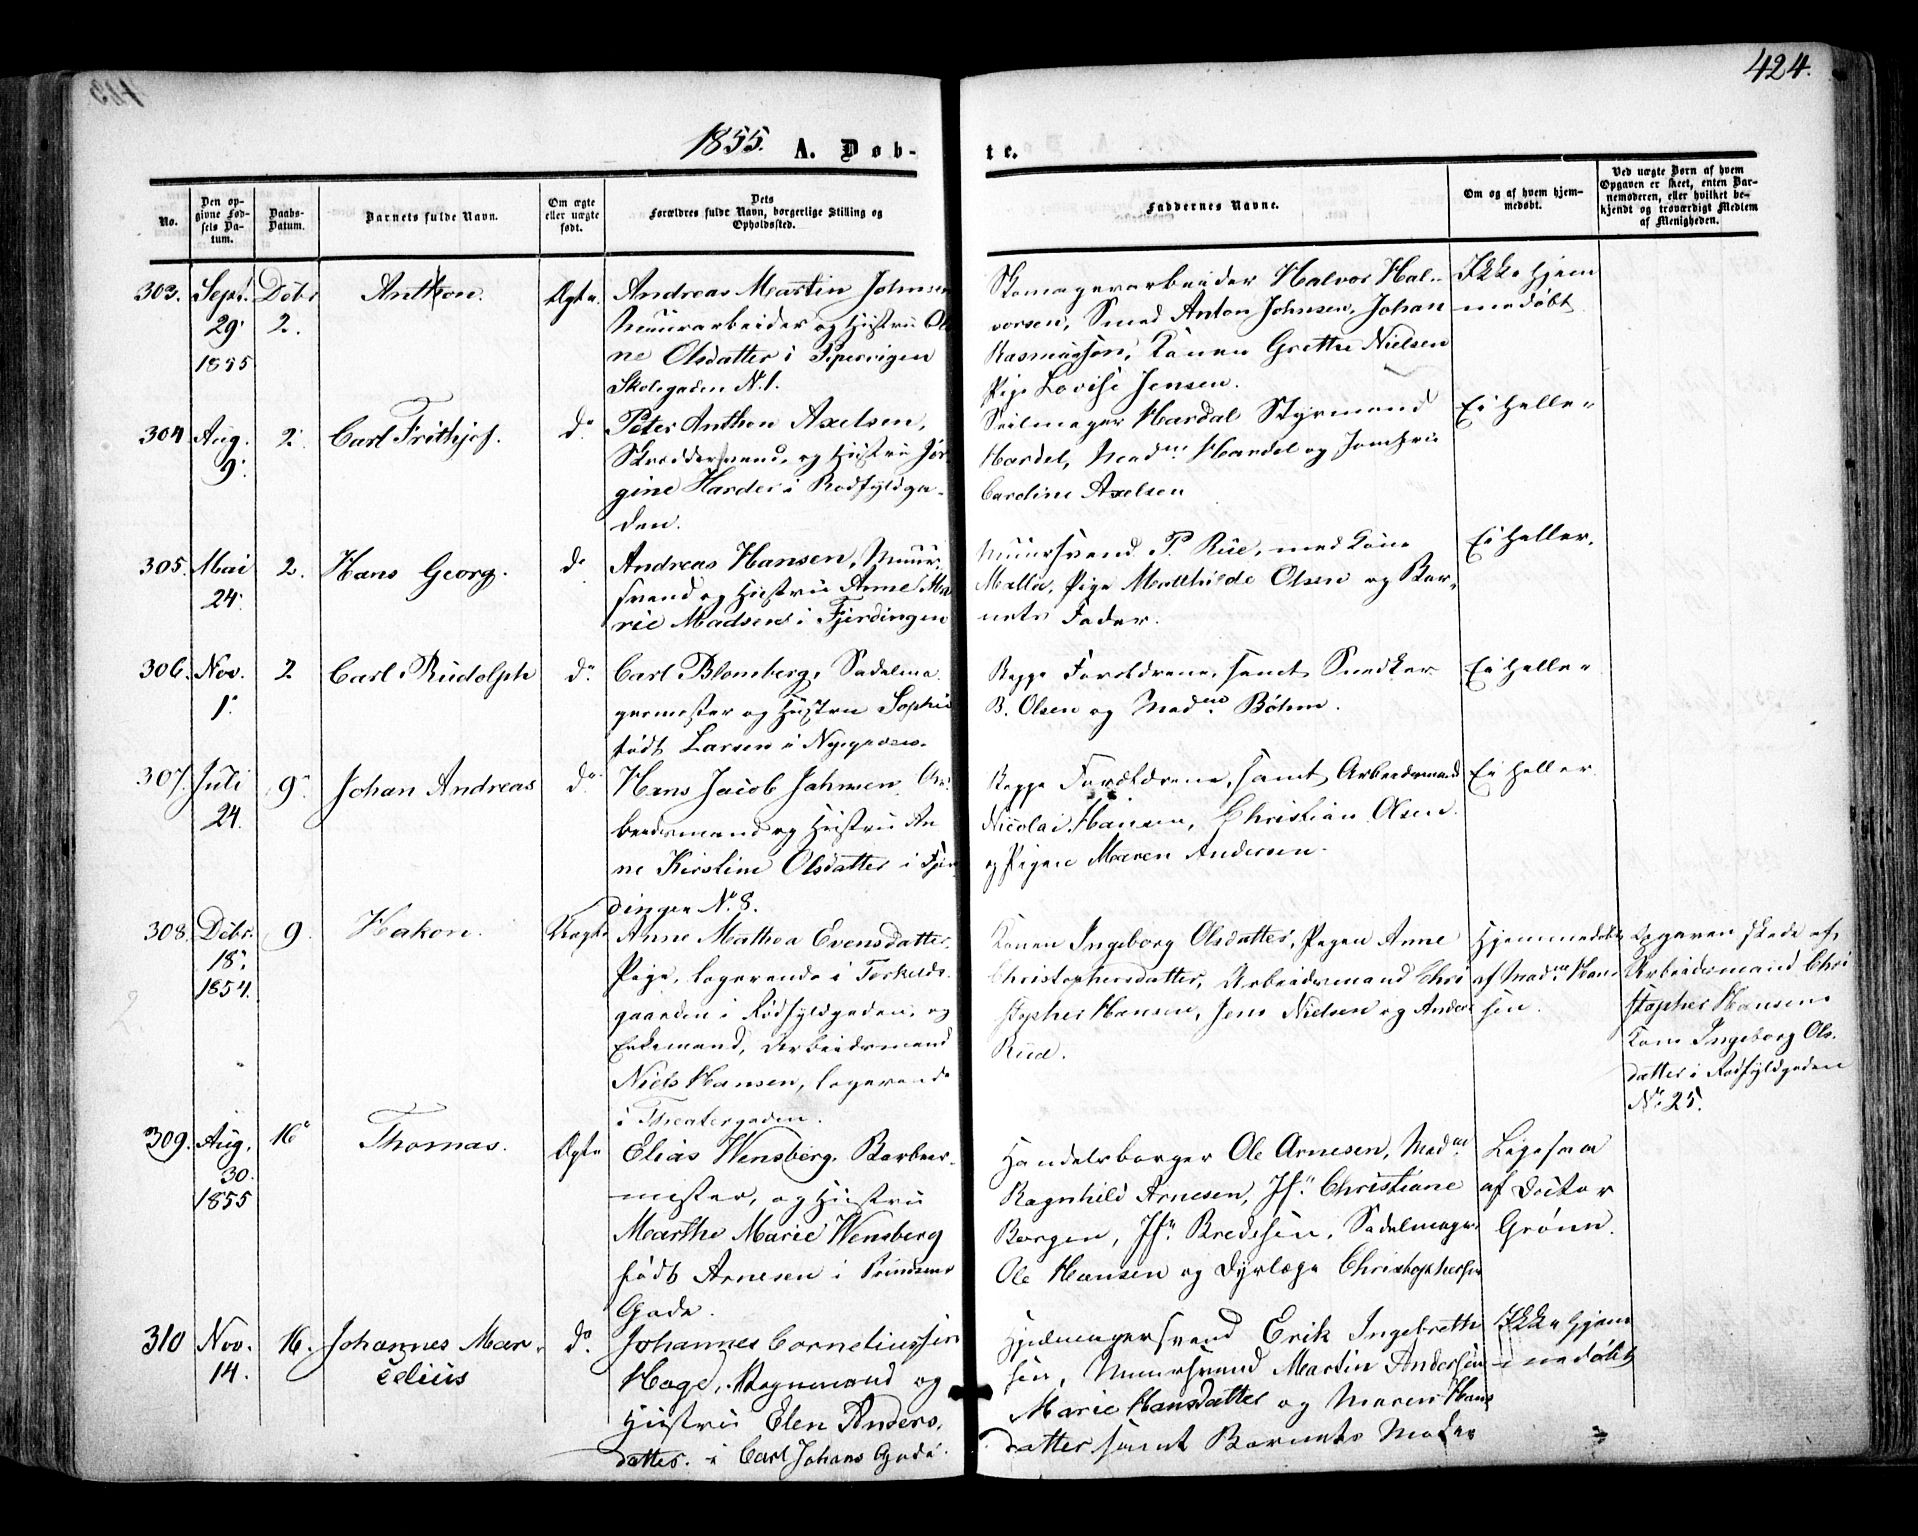 424.
1855. A. Døb- te.
No.
Den opgivne Fødsels Datum.
Daabs-Datum.
Barnets fulde Navn.
Om ægte eller uægte født.
Dets Forældres fulde Navn, borgerlige Stilling og Opholdssted.
Faddernes Navne.
Om og af hvem hjemmedøbt.
Ved uægte Børn af hvem Opgaven er skeet, enten Barnemoderen, eller hvilket bekjendt og troværdigt Medlem af Menigheden.
303.
Sept.
29.
1855
Debr
2.
Anthon.
Ægte.
Andreas Martin Johnsen
Muurarbeider og Hustru
ne Olsdatter i Pipervigen
Skolegaden N. 1.
Skomagerarbeider Halvor Hal-
vorsen, Smed Anton Johnsen, Johan
Rasmussen, Konen Grethe Nielsen
Pige Lovise Jensen.
Ikke hjem
medøbt
304
Aug.
9.
2.
Carl Frithjof.
do
Peter Anthon Axelsen,
Skreddersvend, og Hustru Jør-
gine Harder i Rødfyldga-
den.
Seilmager Hardal Styrmand
Hardel, Madm Hardel og Jomfru
Caroline Axelsen
Ei heller
305.
Mai
24.
2.
Hans Georg.
do
Andreas Hansen, Muur-
svend og Hustru Anne Ma
rie Madsen i Fjerdingen
Muursvend P. Rue, med Kone
Malla, Pige Mathilde Olsen og Bar-
nets Fader.
Ei heller.
306.
Nov.
1.
2
Carl Rudolph
do
Carl Blomberg, Sadelma
germester og Hustru Sophie
født Larsen i Nygaden.
Begge Forældrene, samt Snedker
B. Olsen og Madm Bøhm.
Ei heller
307.
Juli
24.
9.
Johan Andreas
do
Hans Jacob Johnsen, Ar-
beidsmand og Hustru An
ne Kirstine Olsdatter i Fjer
dingen No 8.
Begge Forældrene, samt Arbeidsmand
Nicolai Hansen, Christian Olsen
og Pigen Maren Andersen.
Ei heller
308.
Debr.
18.
1854.
9.
Hakon.
Uægte
Anne Mathea Evensdatter
Pige, logerende i Torkilds-
gaarden i Rødfyldgaden, og
Enkemand, Arbeidsmand
Niels Hansen, logerende
i Theatergaden.
Konen Ingeborg Olsdatter, Pigen Anne
Christophersdatter, Arbeidsmand Chri
stopher Hansen, Jens Nielsen og Anders
Rud.
Hjemmedøbt
af Madm Han
sen.
Opgaven skede af
Arbeidsmand Chri
stopher Hansens
Kone Ingeborg Ols-
datter i Rødfyldgaden
No. 25.
309.
Aug.
30.
1855
16
Thomas.
Ægte
Elias Wensberg, Barbeer-
mester, og Hustru
Marthe Marie Wensberg
født Arnesen i Prindsens
Gade.
Handelsborger Ole Arnesen, Madm
Ragnhild Arnesen, Jfr Christiane
Borgen, Jfr Bredesen, Sadelmager
Ole Hansen og Dyrlæge Christophersen
Ligesaa
af Doctor
Grønn.
310
Nov.
14.
16.
Johannes Mar-
celius
do
Johannes Corneliussen
Hage, Vognmand og
Hustru Elen Anders-
datter. i Carl Johans Gade.
Hjulmagersvend Erik Ingebreth
sen, Muursvend Martin Andersen
Marie Hansdatter og Maren Hans
datter samt Barnets Moder
Ikke hjem
medøbt